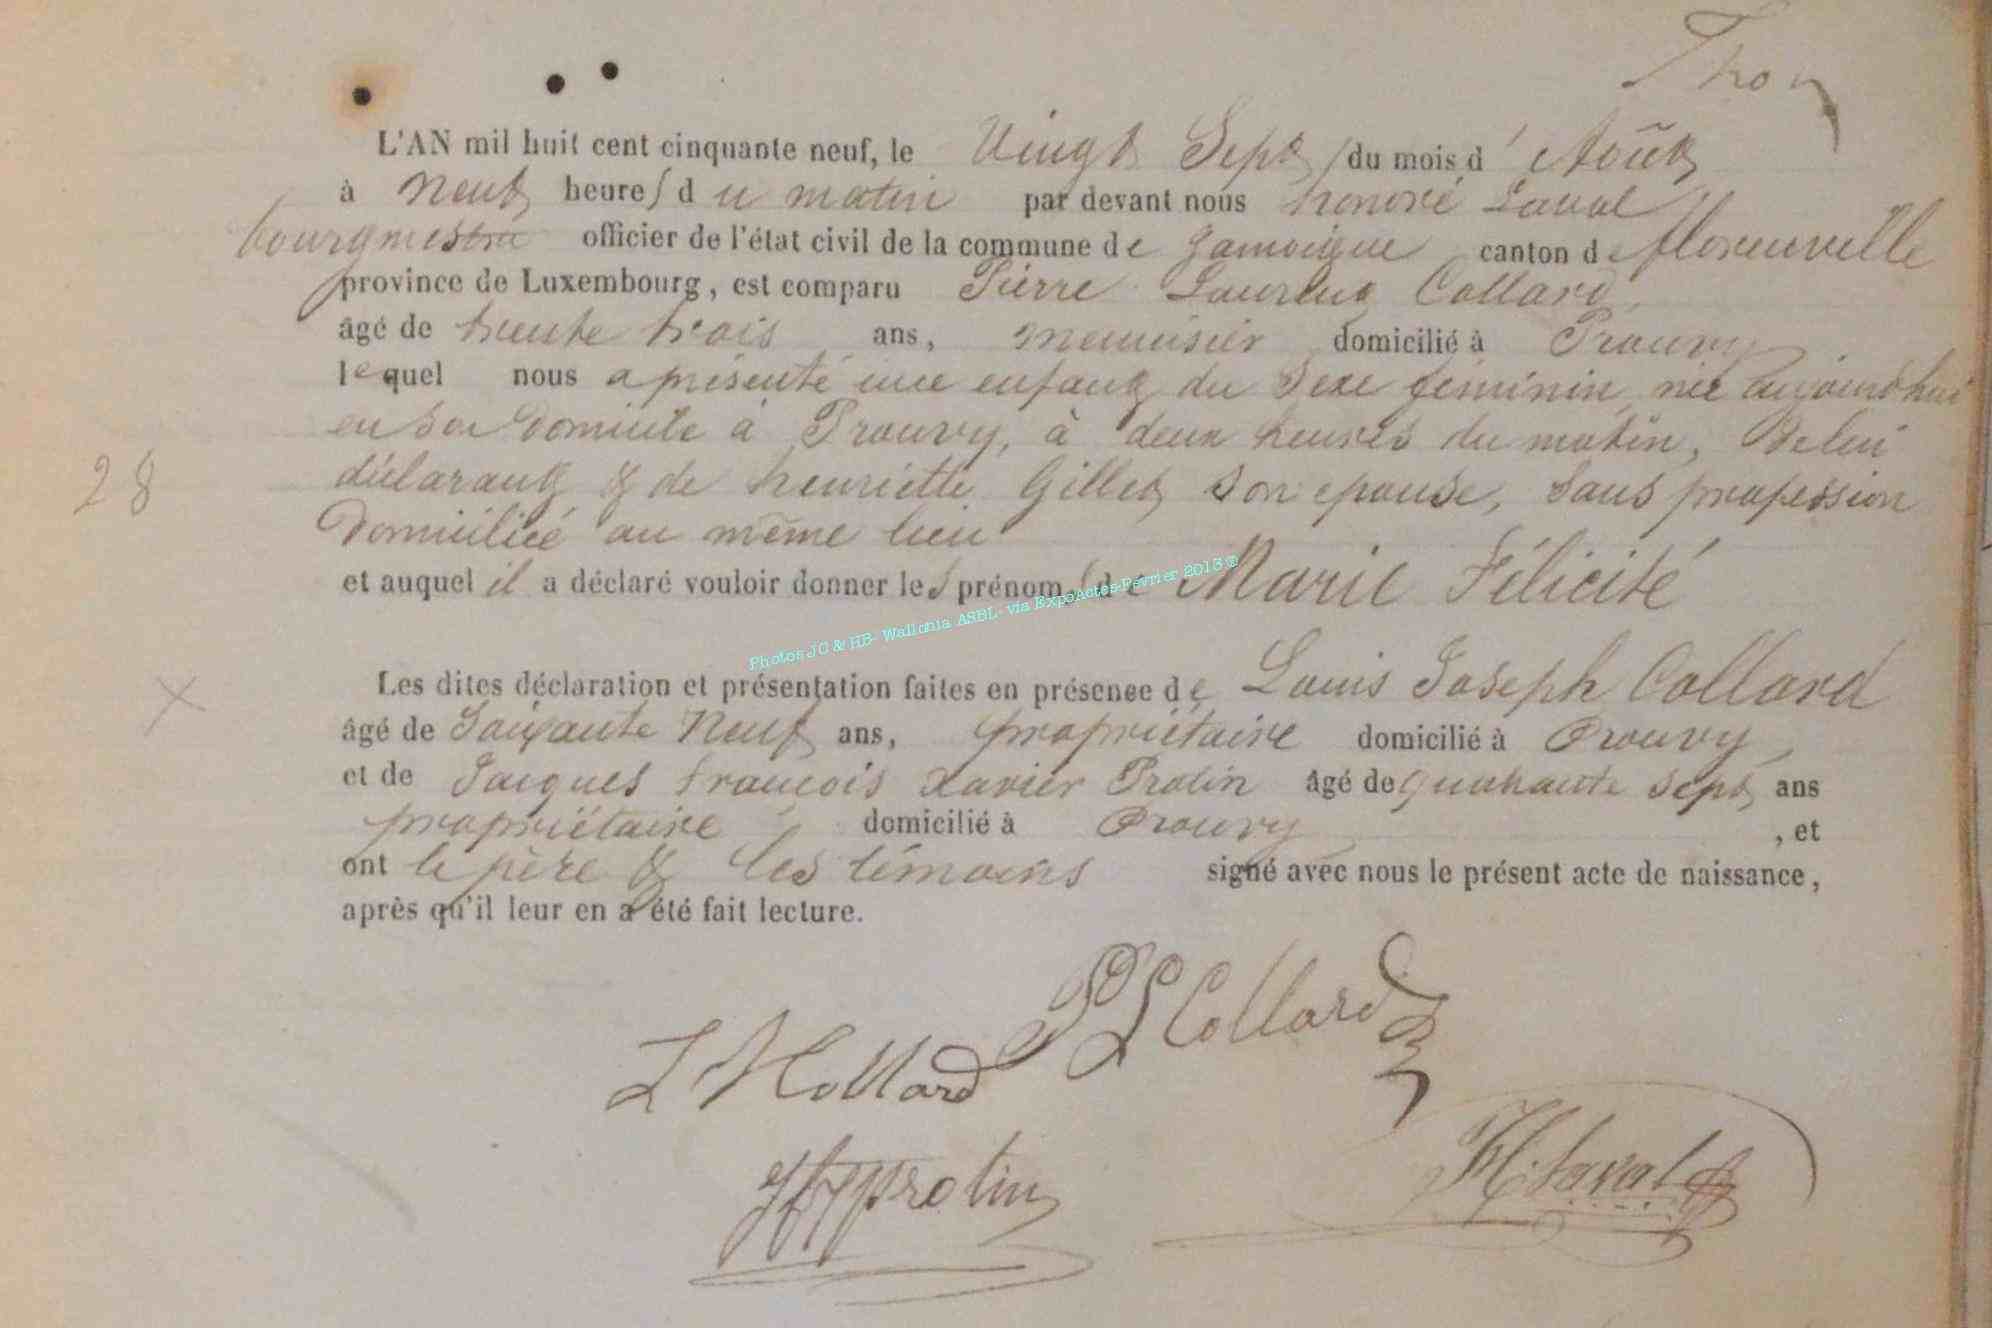 Thon
L'AN mil huit cent cinquante neuf, le Vingt Sept du mois d'Août
à neuf heures du matin par devant nous honoré Laval
bourgmestre officier de l'état civil de la commune de Jamoigne canton de florenville
province de Luxembourg, est comparu Pierre Laurent Collard
âgé de trente trois ans, menuisier domicilié à Prouvy
lequel nous a présenté une enfant du sexe féminin née aujourd'hui
en son Domicile à Prouvy, à deux heures du matin, De lui
28
déclarant & de henriette Gillet son epouse, sans profession
Domiciliée au même lieu
et auquel il a déclaré vouloir donner les prénoms de Marie Félicité
Photos JC & HB- Wallonia ASBL- via ExpoActes-Février 2013 ®
Les dites déclaration et présentation faites en présence de Louis Joseph Collard
X
âgé de Soixante Neuf ans, propriétaire domicilié à Prouvy,
et de Jacques françois Xavier Protin âgé de quarante sept ans
propriétaire domicilié à Prouvy, et
ont le père & les témoins signé avec nous le présent acte de naissance,
après qu'il leur en a été fait lecture.
P L Collard
L J Collard
J f x protin
H. Laval